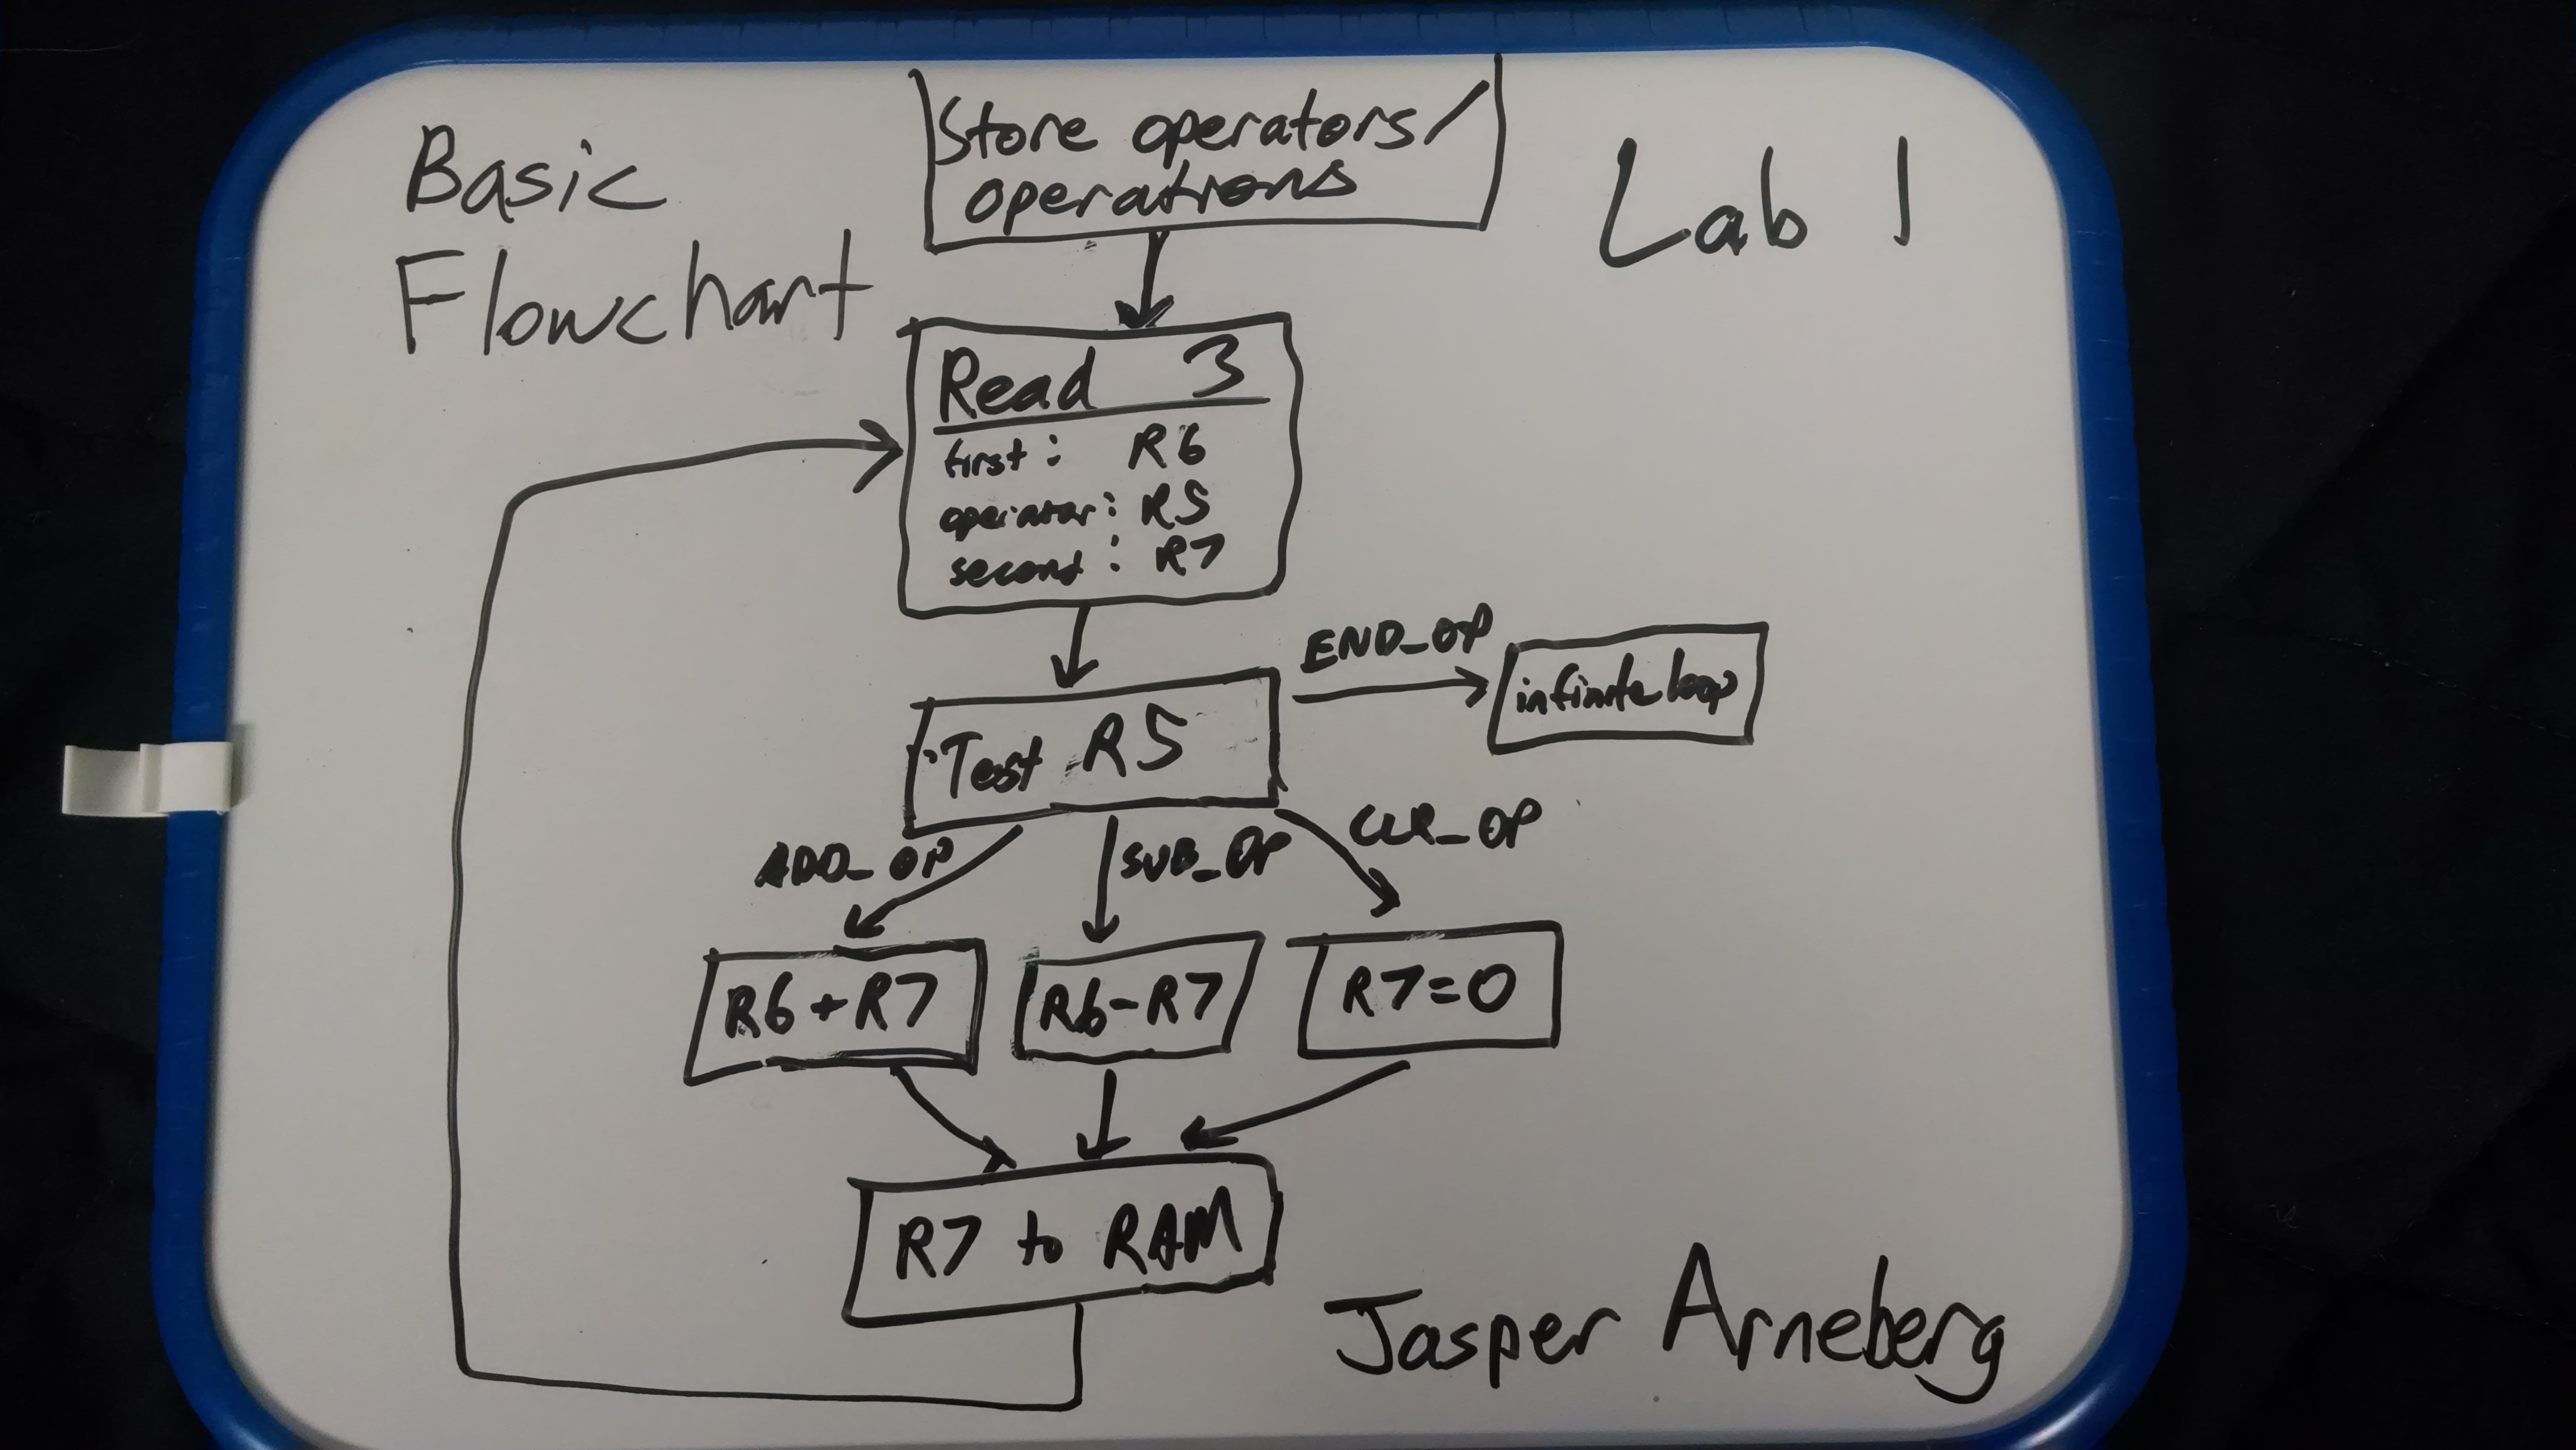 Basic
Flowchart
Store operators/
operations
Lab 1
Read 3
first: R6
operator: R5
second: R7
END_OP
infinite loop
Test R5
ADD_OP
SUB_OP
CLR_OP
R6+R7
R6-R7
R7=0
R7 to RAM
Jasper Arneberg